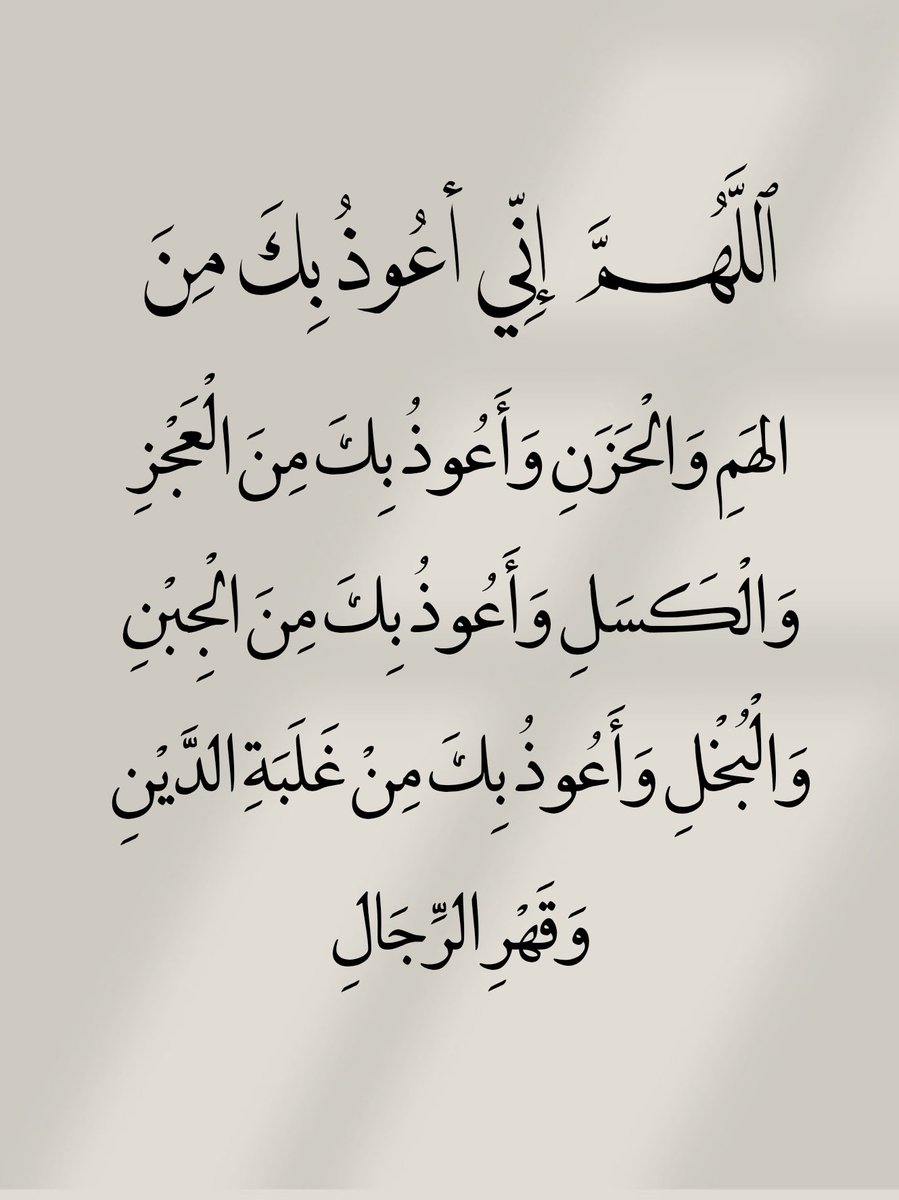 ٱللَّهُمَّ إِنِّي أعُوذُ بِكَ مِنَ
الهَمِ وَالْحَزَنِ وَأَعُوذُ بِكَ مِنَ الْعَجْزِ
وَالْكَسَلِ وَأَعُوذُ بِكَ مِنَ الْجِبْنِ
وَالْبُخْلِ وَأَعُوذُ بِكَ مِنْ غَلَبَةِ الدَّيْنِ
وَقَهْرِ الرِّجَالِ